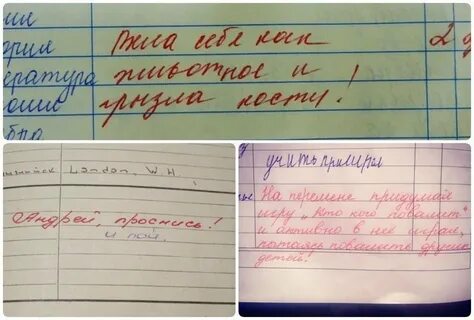 ория
Вела себя как
2
ература
животное и
грызла кость!
London, W.H.
Андрей, проснись!
и пой.
учить примеры
На перемене придумал
игру "Кто кого повалит"
и активно в неё играл,
пытаясь повалить других
детей!